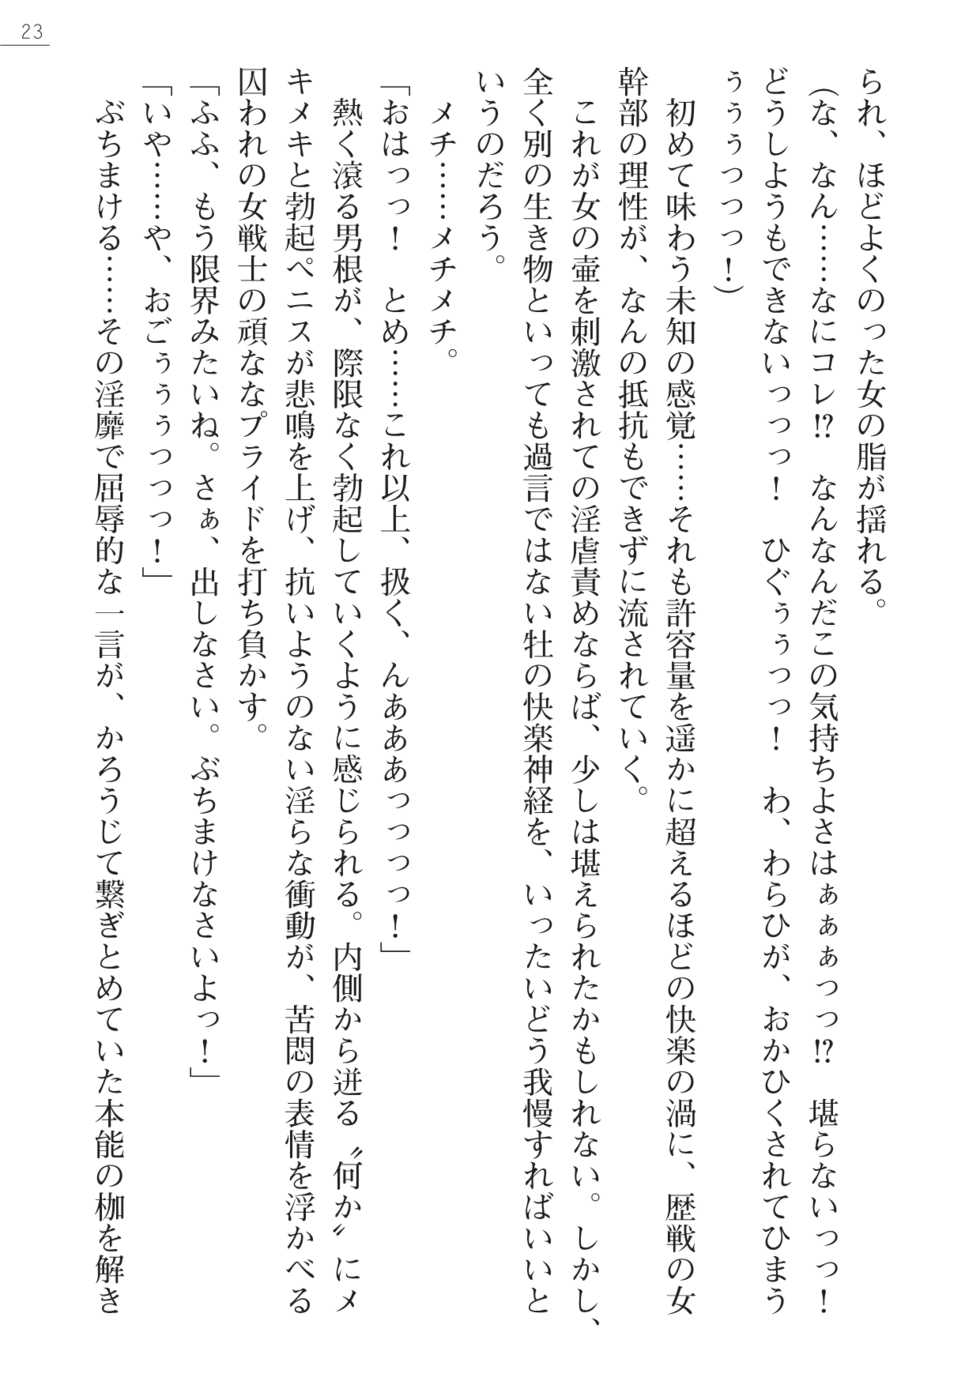 23
られ、ほどよくのった女の脂が揺れる。
（な、なん……なにコレ!?　なんなんだこの気持ちよさはぁぁぁっっ!?　堪らないっっ！
どうしようもできないっっっ！　ひぐぅぅっっ！　わ、わらひが、おかひくされてひまう
ぅぅぅっっっ！）
　初めて味わう未知の感覚……それも許容量を遥かに超えるほどの快楽の渦に、歴戦の女
幹部の理性が、なんの抵抗もできずに流されていく。
　これが女の壷を刺激されての淫虐責めならば、少しは堪えられたかもしれない。しかし、
全く別の生き物といっても過言ではない牡の快楽神経を、いったいどう我慢すればいいと
いうのだろう。
　メチ……メチメチ。
「おはっっ！　とめ……これ以上、扱く、んあああっっっっ！」
　熱く滾る男根が、際限なく勃起していくように感じられる。内側から迸る〝何か〟にメ
キメキと勃起ペニスが悲鳴を上げ、抗いようのない淫らな衝動が、苦悶の表情を浮かべる
囚われの女戦士の頑ななプライドを打ち負かす。
「ふふ、もう限界みたいね。さぁ、出しなさい。ぶちまけなさいよっ！」
「いや……や、おごぅぅぅっっっ！」
　ぶちまける……その淫靡で屈辱的な一言が、かろうじて繋ぎとめていた本能の枷を解き